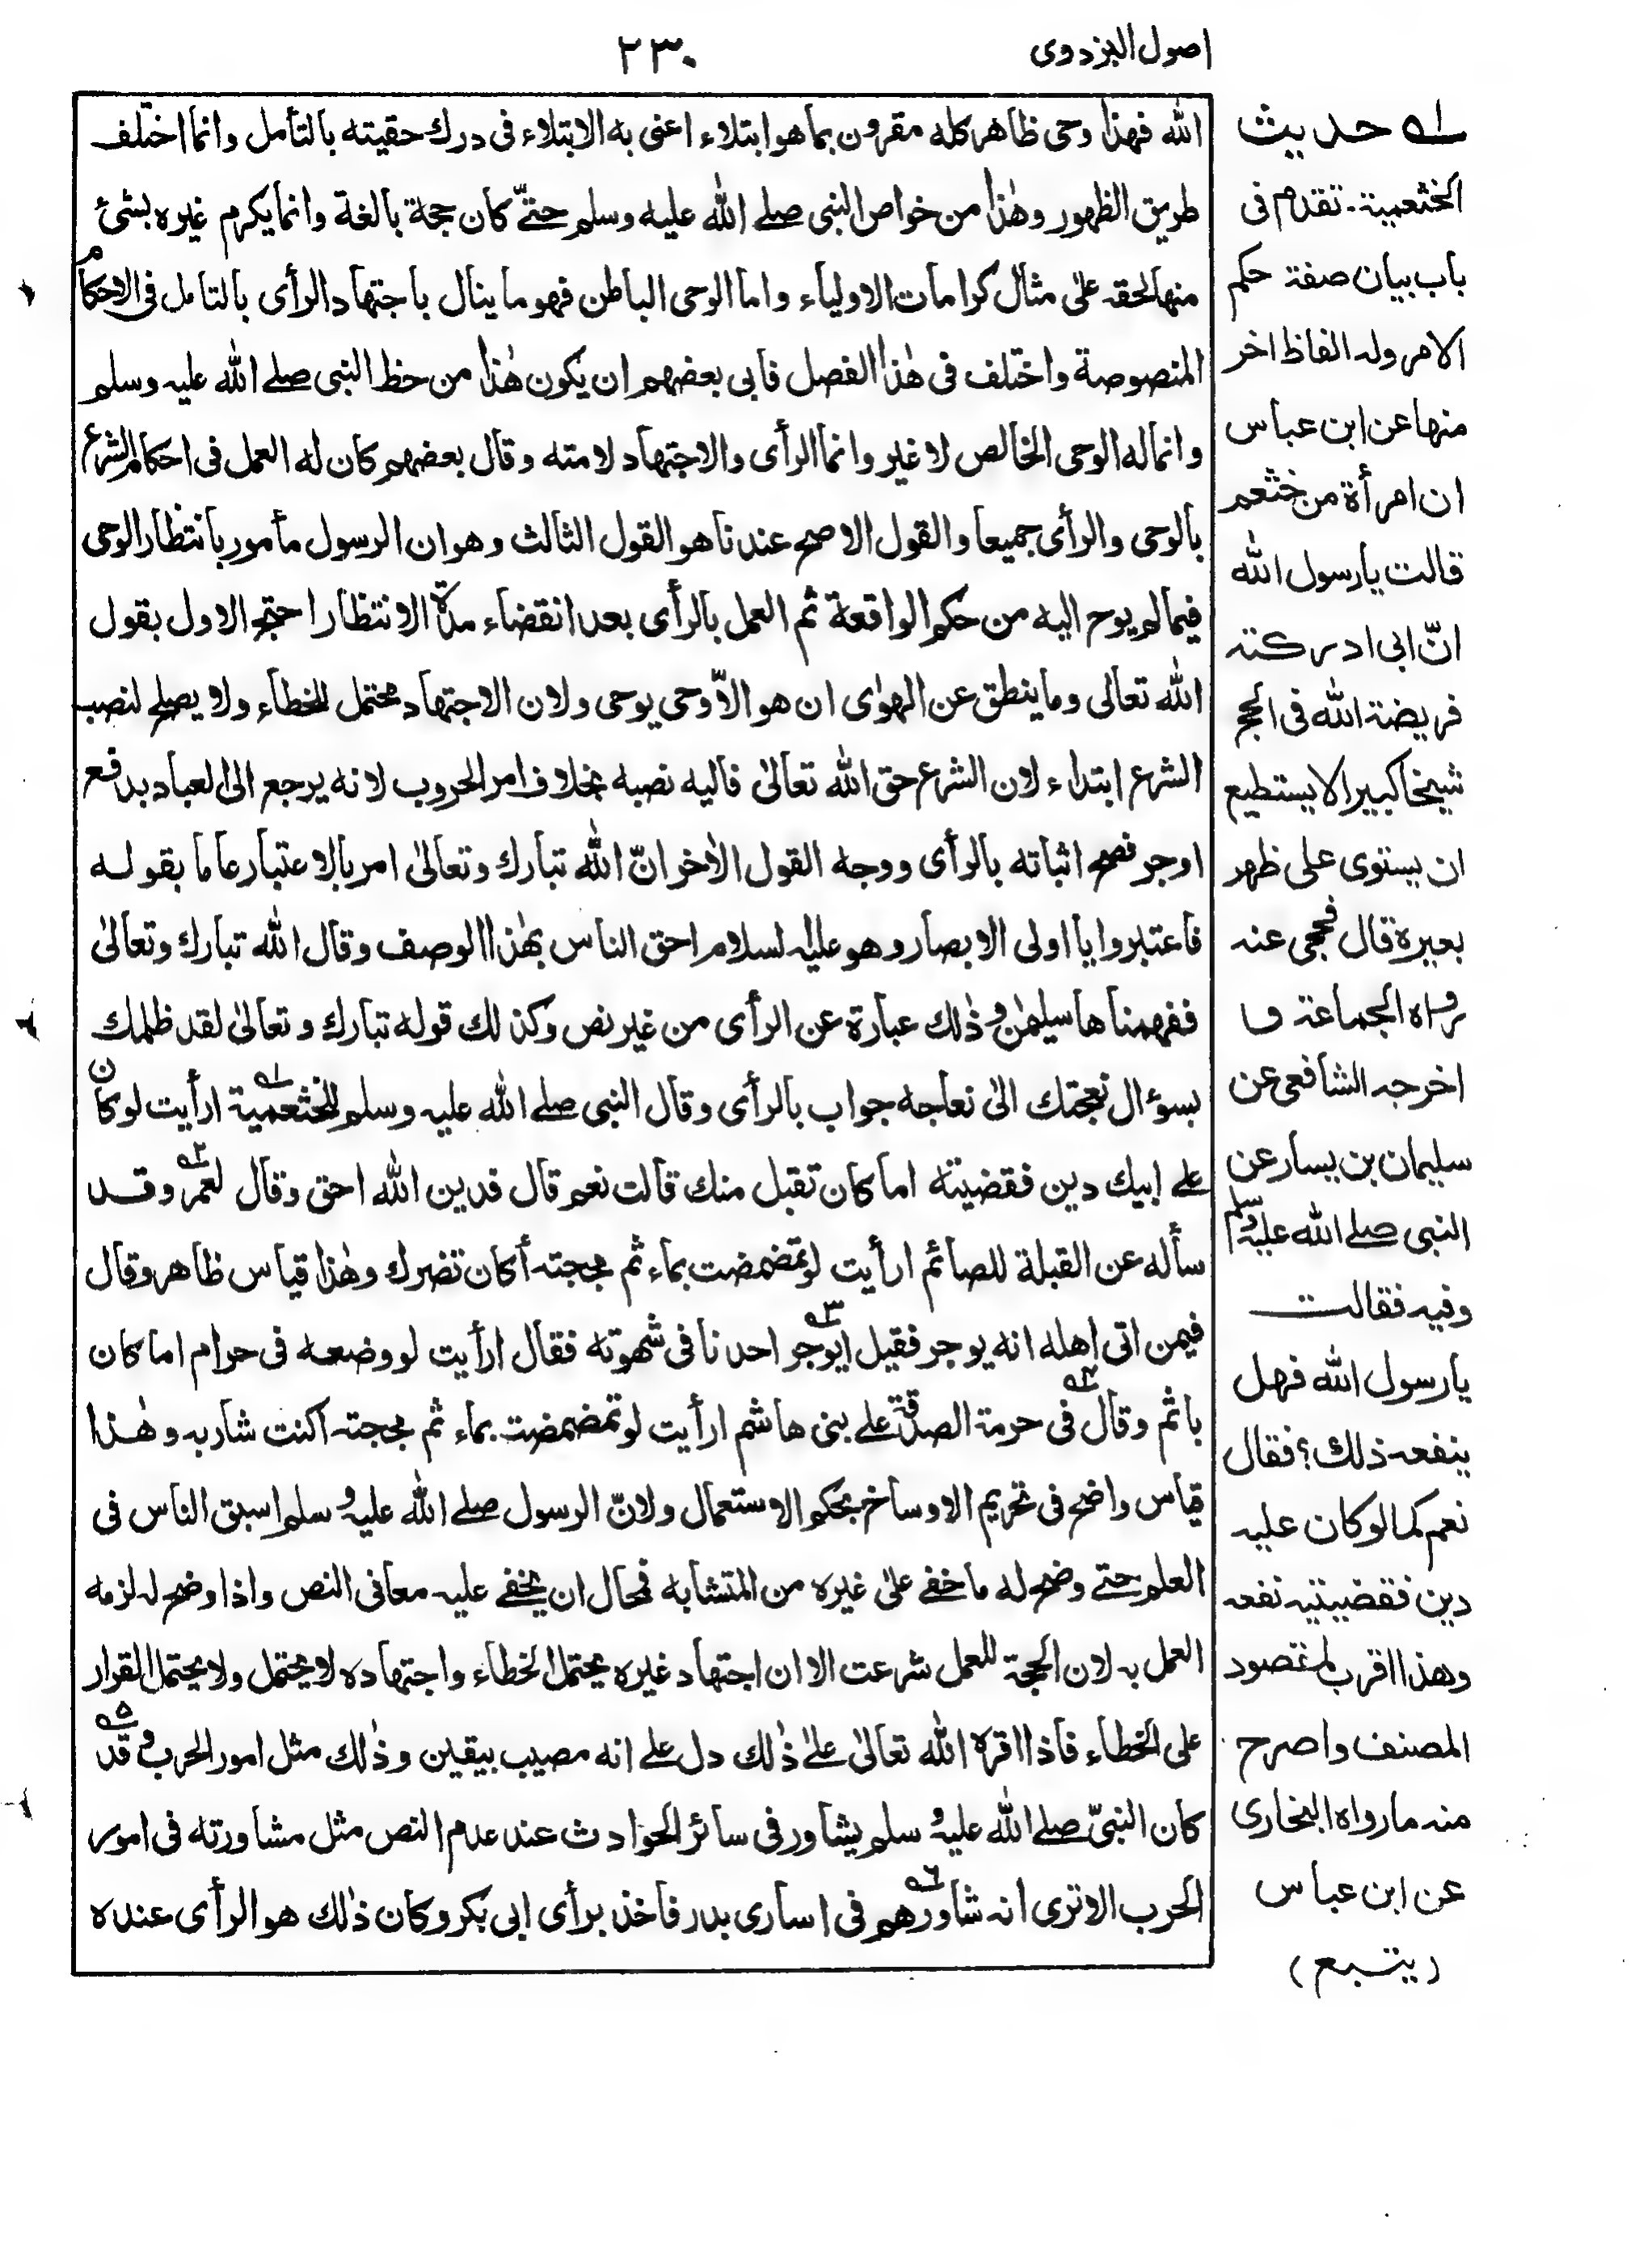 اصول البزدوى
٢٣٠
الله فهذا وحى ظاهر كله مقرون بما هو ابتلاء اعنى به الابتلاء فى درك حقيته بالتأمل وانما اختلف
طريق الظهور وهٰذا من خواص النبى صلے الله عليه وسلم حتّے كان حجة بالغة وانما يكرم غيره بشئ
منها لحقه علىٰ مثال كرامات الاولياء واما الوحى الباطن فهو ما ينال باجتهاد الرأى بالتامل فى الاحكام
المنصوصة واختلف فى هٰذا الفصل فابى بعضهم ان يكون هٰذا من حظ النبى صلے الله عليه وسلم
وانما له الوحى الخالص لا غير وانما الرأى والاجتهاد لامته وقال بعضهم كان له العمل فى احكام الشرع
بالوحى والرأى جميعا والقول الاصح عندنا هو القول الثالث وهو ان الرسول مأمور بانتظار الوحى
فيما لم يوح اليه من حكم الواقعة ثم العمل بالرأى بعد انقضاء مدّة الانتظار احتج الاول بقول
الله تعالى وما ينطق عن الهوٰى ان هو الاّ وحى يوحى ولان الاجتهاد محتمل للخطاء ولا يصلح لنصب
الشرع ابتداء لان الشرع حق الله تعالىٰ فاليه نصبه بخلاف امر الحروب لانه يرجع الى العباد بدفع
او جر فصح اثباته بالرأى ووجه القول الاٰخر انّ الله تبارك وتعالىٰ امر بالاعتبار عاما بقوله
فاعتبروا يا اولى الابصار وهو عليه السلام احق الناس بهٰذا الوصف وقال الله تبارك وتعالىٰ
ففهمناها سليمٰن وذٰلك عبارة عن الرأى من غير نص وكذلك قوله تبارك وتعالىٰ لقد ظلمك
بسؤال نعجتك الىٰ نعاجه جواب بالرأى وقال النبى صلے الله عليه وسلم للخثعمية ١ه ارأيت لو كان
علے ابيك دين فقضيته اما كان تقبل منك قالت نعم قال فدين الله احق وقال لعمر ٢ه وقد
سأله عن القبلة للصائم ارأيت لو تمضمضت بماء ثم مججته أكان تضرك وهٰذا قياس ظاهر وقال
فيمن اتى اهله انه يوجر فقيل ايوجر ٣ه احدنا فى شهوته فقال ارأيت لو وضعه فى حرام اما كان
ياثم وقال ٤ه فى حرمة الصدقة علے بنى هاشم ارأيت لو تمضمضت بماء ثم مججته اكنت شاربه وهٰذا
قياس واضح فى تحريم الاوساخ بحكم الاستعمال ولانّ الرسول صلے الله عليه وسلم اسبق الناس فى
العلم حتے وضح له ما خفے علىٰ غيره من المتشابه فمحال ان يخفے عليه معانى النص واذا وضح له لزمه
العمل به لان الحجة للعمل شرعت الا ان اجتهاد غيره يحتمل الخطاء واجتهاده لا يحتمل ولا يحتمل القرار
على الخطاء فاذا اقره الله تعالىٰ علےٰ ذٰلك دل علے انه مصيب بيقين وذٰلك مثل امور الحرب وقد ٥ه
كان النبىّ صلے الله عليه وسلم يشاور فى سائر الحوادث عند عدم النص مثل مشاورته فى امور
الحرب الا ترى انه شاورهم ٦ه فى اسارى بدر فاخذ برأى ابى بكر وكان ذٰلك هو الرأى عنده
١ه حديث
الخثعمية۔ تقدم فى
باب بيان صفة حكم
الامر وله الفاظ اخر
منها عن ابن عباس
ان امرأة من خثعم
قالت يا رسول الله
انّ ابى ادركته
فريضة الله فى الحج
شيخا كبيرا لا يستطيع
ان يستوى على ظهر
بعيره قال فحجى عنه
رواه الجماعة و
اخرجه الشافعى عن
سليمان بن يسار عن
النبى صلے الله عليه وسلم
وفيه فقالت
يا رسول الله فهل
ينفعه ذلك؟ فقال
نعم كما لو كان عليه
دين فقضيتيه نفعه
وهذا اقرب لمقصود
المصنف واصرح
منه ما رواه البخارى
عن ابن عباس
(يتبع)